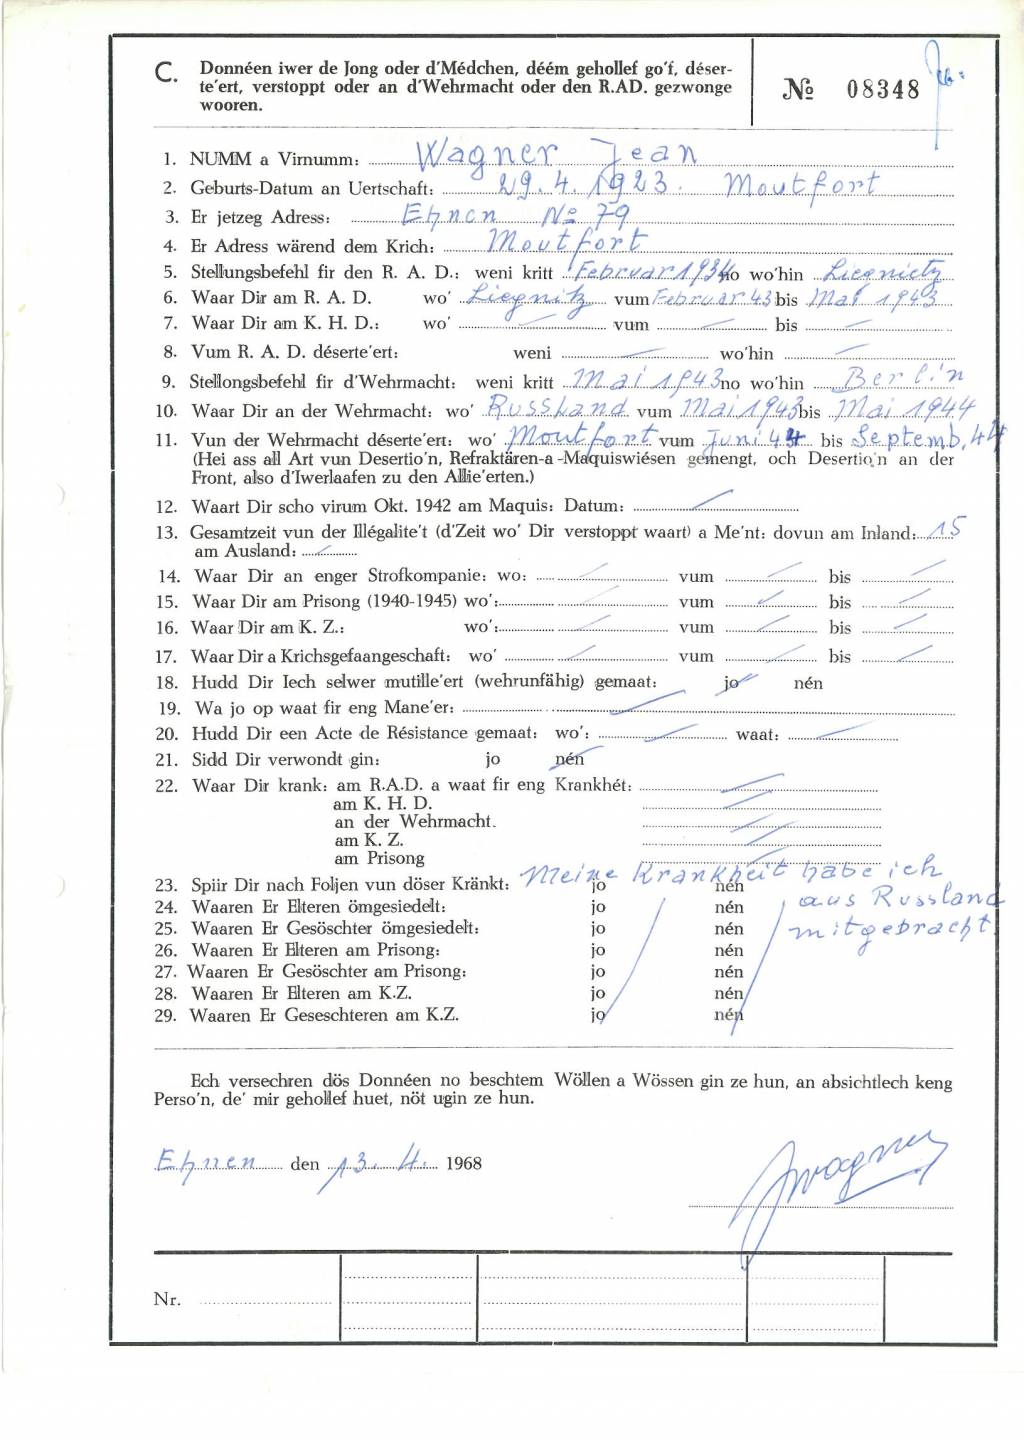 C. Donnéen iwer de Jong oder d'Médchen, déém gehollef go'f, déser-
te'ert, verstoppt oder an d'Wehrmacht oder den R.AD. gezwonge
wooren.
№ 08348
1. NUMM a Virnumm: Wagner Jean
2. Geburts-Datum an Uertschaft: 29.4.1923. Moutfort
3. Er jetzeg Adress: Ehnen No 79
4. Er Adress wärend dem Krich: Moutfort
5. Stellungsbefehl fir den R. A. D.: weni kritt Februar 1934 no wo'hin Liegnietz
6. Waar Dir am R. A. D. wo' Liegnitz vum Februar 43 bis Mai 1943
7. Waar Dir am K. H. D.: wo' vum bis
8. Vum R. A. D. déserte'ert: weni wo'hin
9. Stellongsbefehl fir d'Wehrmacht: weni kritt Mai 1943 no wo'hin Berlin
10. Waar Dir an der Wehrmacht: wo' Russland vum Mai 1943 bis Mai 1944
11. Vun der Wehrmacht déserte'ert: wo' Moutfort vum Juni 44 bis Septemb. 44
(Hei ass all Art vun Desertio'n, Refraktären-a-Maquiswiésen gemengt, och Desertio'n an der
Front, also d'Iwerlaafen zu den Allie'erten.)
12. Waart Dir scho virum Okt. 1942 am Maquis: Datum:
13. Gesamtzeit vun der Illégalite't (d'Zeit wo' Dir verstoppt waart) a Me'nt: dovun am Inland: 15
am Ausland:
14. Waar Dir an enger Strofkompanie: wo: vum bis
15. Waar Dir am Prisong (1940-1945) wo': vum bis
16. Waar Dir am K. Z.: wo': vum bis
17. Waar Dir a Krichsgefaangeschaft: wo' vum bis
18. Hudd Dir Iech selwer mutille'ert (wehrunfähig) gemaat: jo nén
19. Wa jo op waat fir eng Mane'er:
20. Hudd Dir een Acte de Résistance gemaat: wo': waat:
21. Sidd Dir verwondt gin: jo nén
22. Waar Dir krank: am R.A.D. a waat fir eng Krankhét:
am K. H. D.
an der Wehrmacht.
am K. Z.
am Prisong
23. Spiir Dir nach Foljen vun döser Kränkt: jo nén Meine Krankheit habe ich
24. Waaren Er Elteren ömgesiedelt: jo nén aus Russland
25. Waaren Er Gesöschter ömgesiedelt: jo nén mitgebracht.
26. Waaren Er Elteren am Prisong: jo nén
27. Waaren Er Gesöschter am Prisong: jo nén
28. Waaren Er Elteren am K.Z. jo nén
29. Waaren Er Geseschteren am K.Z. jo nén
Ech versechren dös Donnéen no beschtem Wöllen a Wössen gin ze hun, an absichtlech keng
Perso'n, de' mir gehollef huet, nöt ugin ze hun.
Ehnen den 13.4. 1968
JWagner
Nr.